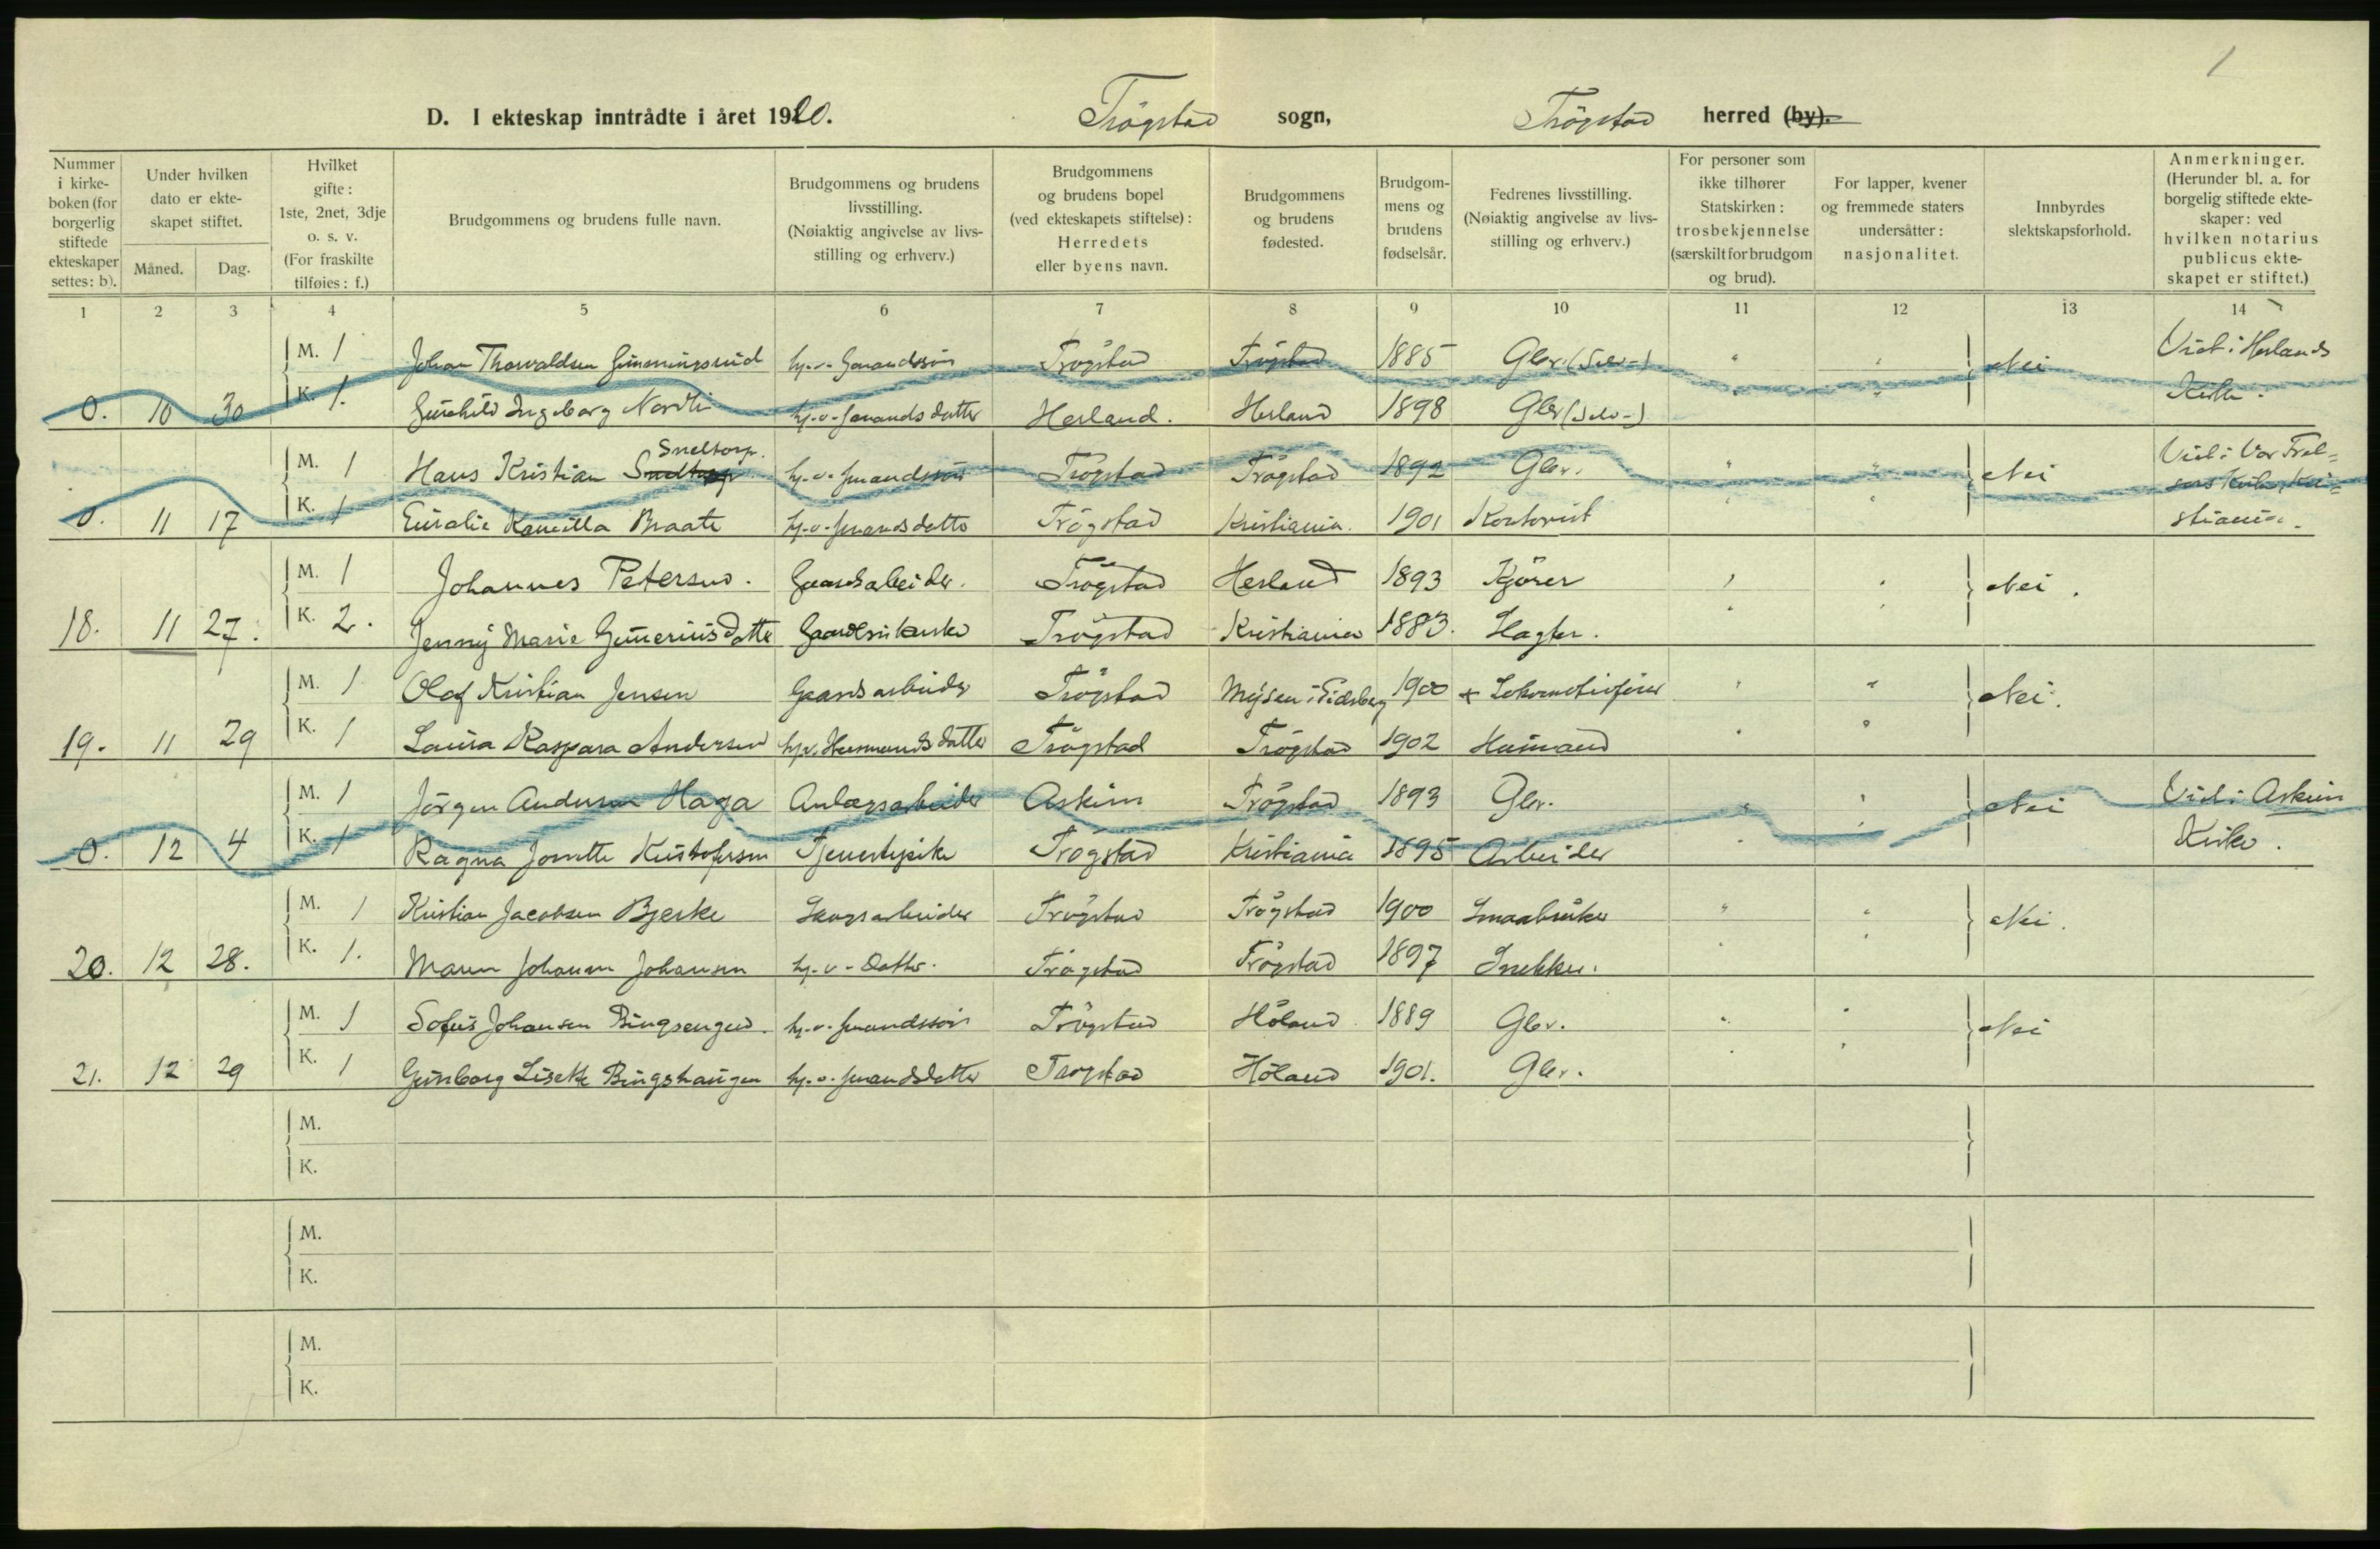 1
D. I ekteskap inntrådte i året 1920. Trögstad sogn, Trögstad herred (by).
Nummer i kirkeboken (for borgerlig stiftede ekteskaper settes: b).
Under hvilken dato er ekteskapet stiftet.
Måned. Dag.
Hvilket gifte: 1ste, 2net, 3dje o. s. v. (For fraskilte tilføies: f.)
Brudgommens og brudens fulle navn.
Brudgommens og brudens livsstilling. (Nøiaktig angivelse av livsstilling og erhverv.)
Brudgommens og brudens bopel (ved ekteskapets stiftelse): Herredets eller byens navn.
Brudgommens og brudens fødested.
Brudgommens og brudens fødselsår.
Fedrenes livsstilling. (Nøiaktig angivelse av livsstilling og erhverv.)
For personer som ikke tilhører Statskirken: trosbekjennelse (særskilt for brudgom og brud).
For lapper, kvener og fremmede staters undersåtter: nasjonalitet.
Innbyrdes slektskapsforhold.
Anmerkninger. (Herunder bl. a. for borgelig stiftede ekteskaper: ved hvilken notarius publicus ekteskapet er stiftet.)
1 2 3 4 5 6 7 8 9 10 11 12 13 14
M. 1 Johan Thorvaldsen Trögstad Trögstad 1885 Gbr. (Selv-) " " Nei Viet i Herlands
0. 10 30 K. 1. Gunhild Ingeborg Nordli Herland. Herland 1898 Gbr (Selv-) " " Kirke.
Sneltorp.
M. 1 Hans Kristian Sneltorp Trögstad Trögstad 1892 Gbr. " " Nei Viet i Vor Frel=
sers Kirke, Kri=
0. 11 17 K. 1 Kamilla Braate Trögstad Kristiania. 1901 Kontorist " " stiania.
M. 1 Johannes Petersen. Gaardsarbeider. Trögstad Herland 1893 Kjörer " " Nei.
18. 11 27. K. 2. Jenny Marie Gunerius datter Trögstad Kristiania 1883. Slagter. " "
M. 1 Olaf Kristian Jensen Gaardsarbeider Trögstad Mysen i Eidsberg 1900 + Lokomotivförer " " Nei.
19. 11 29 K. 1 Laura Kaspara Andersen h.v. Husmands datter Trögstad Trögstad 1902 Husmand " "
M. 1 Jörgen Andersen Haga Anlægsarbeider Askim Trögstad 1893 Gbr. " " Nei Viet i Askim
0. 12 4 K. 1 Ragna Josette Kristofersen Tjenestepike Trögstad Kristiania 1895 Arbeider " " Kirke.
M. 1 Kristian Jacobsen Bjerke Skogsarbeider Trögstad Trögstad 1900 Smaabruker " " Nei.
20. 12 28. K. 1. Maren Johanne Johansen hj. v. Datter. Trögstad Trögstad 1897 Snekker. " "
M. 1 Sofus Johansen Bingsengen. Trögstad Höland 1889 Gbr. " " Nei
21. 12 29 K. 1 Gunborg Lisette Bingshaugen Trögstad Höland 1901. Gbr. " "
M.
K.
M.
K.
M.
K.